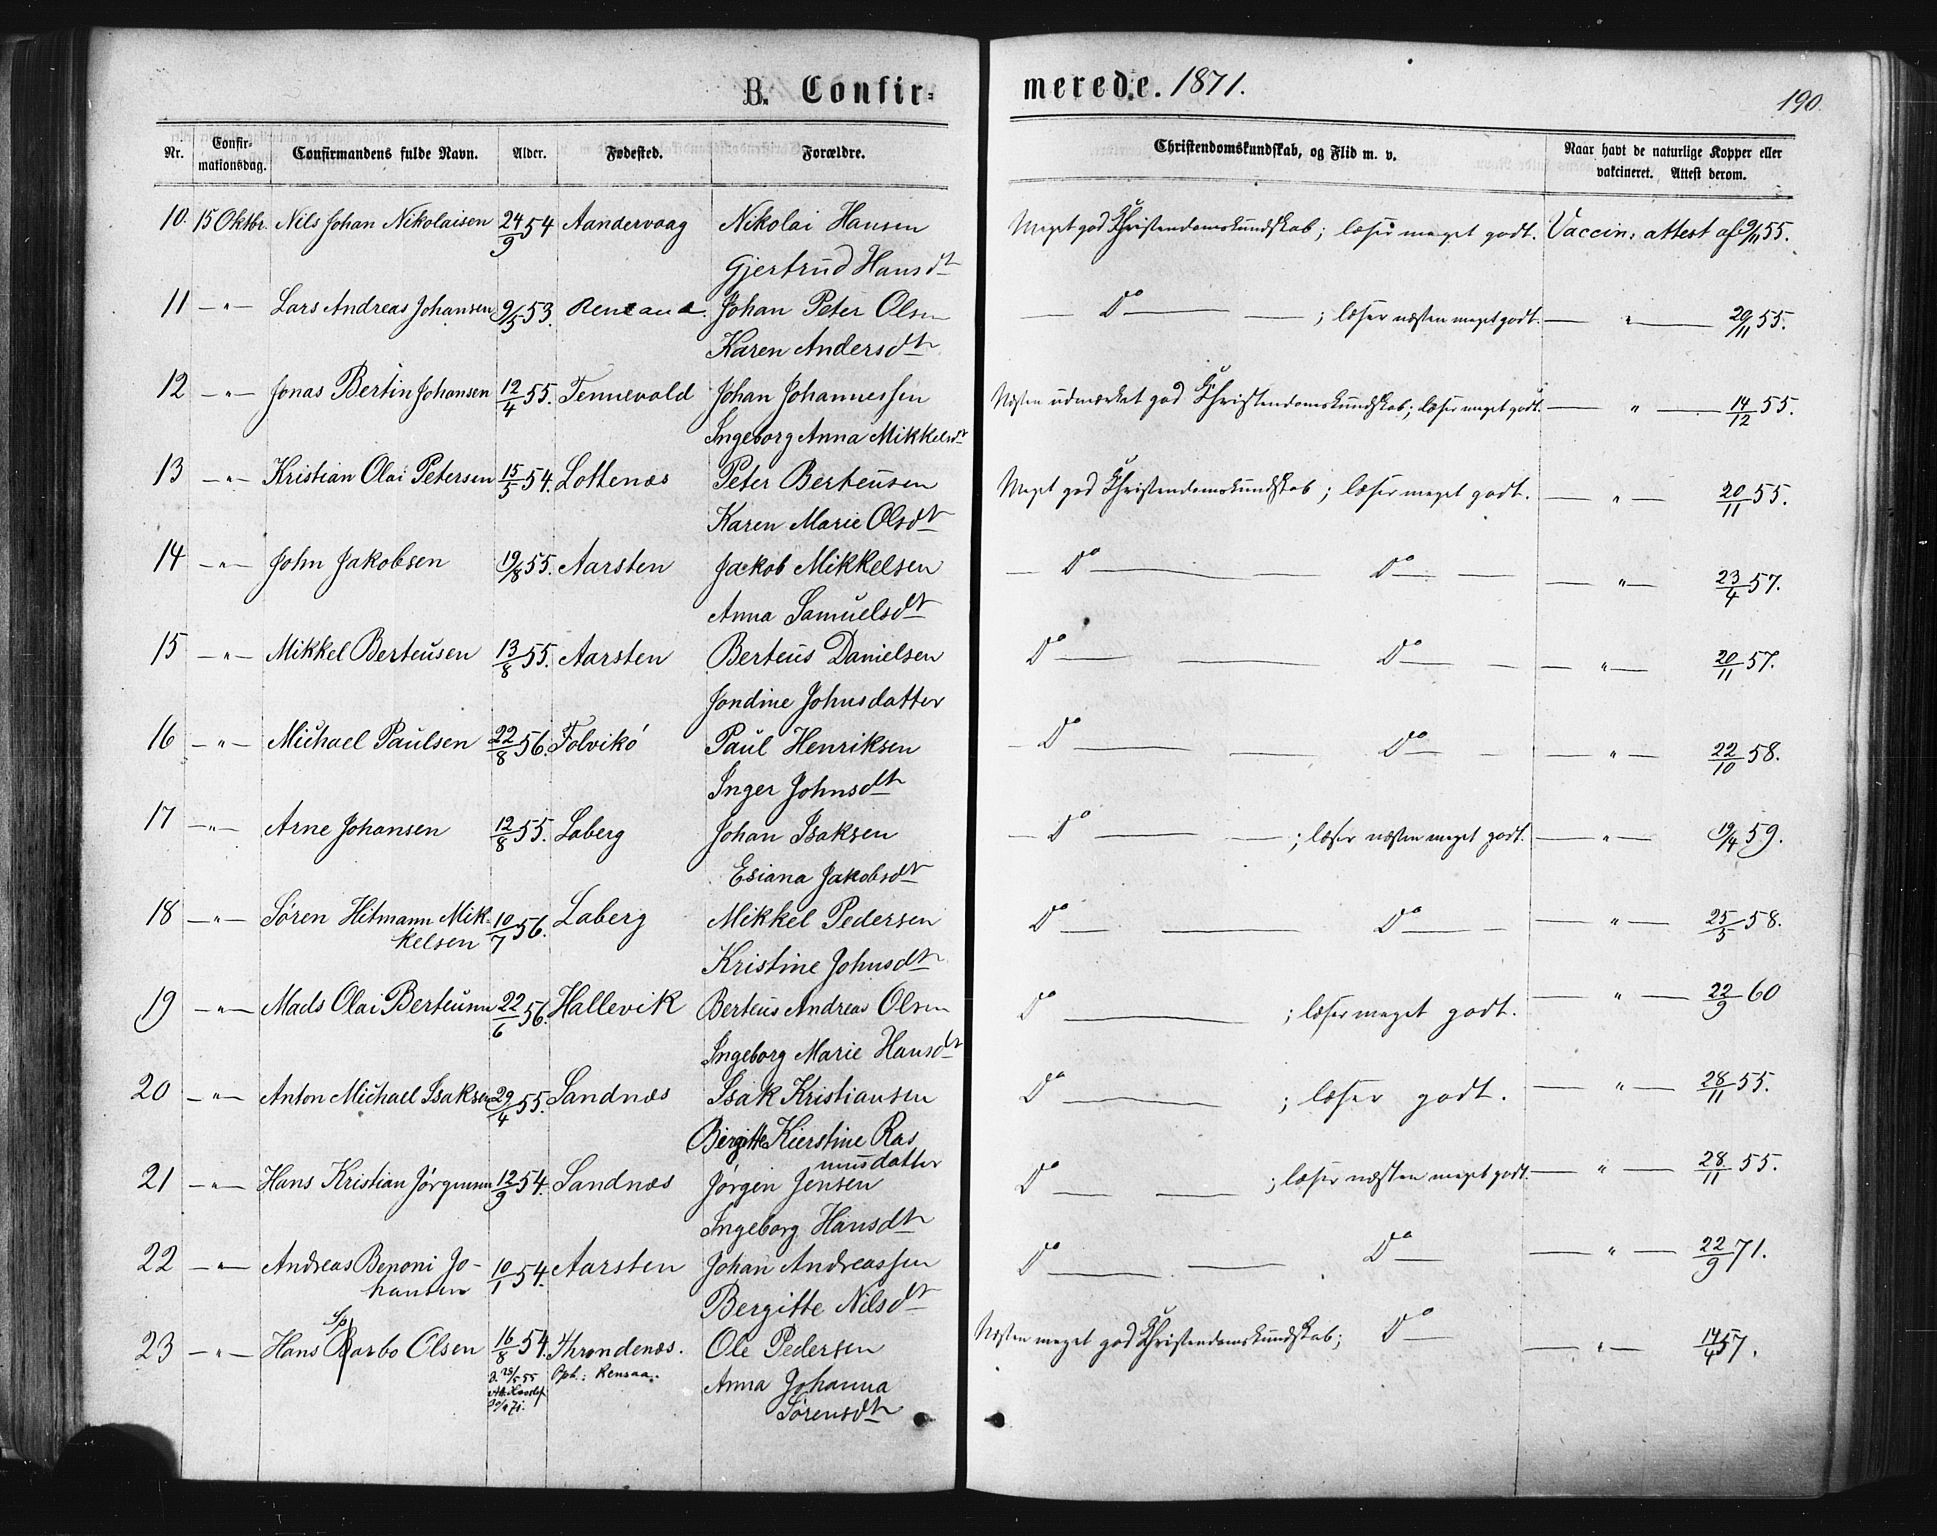 B. Confir- merede. 1871.
190.
Nr. Confirmationsdag. Confirmandens fulde Navn. Alder. Fødested. Forældre. Christendomskundskab, og Flid m. v. Naar havt de naturlige Kopper eller vakcineret. Attest derom.
10. 15 Oktbr. Nils Johan Nikolaisen 24/9 54 Aandervaag Nikolai Hansen Meget god Christendomskundskab; læser meget godt. Vaccin: attest af 9/11 55.
Gjertrud Hansdtr
11 — " — Lars Andreas Johansen 9/5 53. Johan Peter Olsen — Do — — ; læser næsten meget godt. — " — 29/11 55.
Karen Andersdtr
12 — " — Jonas Bertin Johansen 12/4 55. Tennevold Johan Johannessen Næsten udmærket god Christendomskundskab; læser meget godt. — " — 14/12 55.
Ingeborg Anna Mikkelsdtr
13 — " — Kristian Olai Petersen 15/5 54. Lottenæs Peter Berteusen Meget god Christendomskundskab; læser meget godt. — " — 20/11 55.
Karen Marie Olsdtr
14 — " — John Jakobsen 19/8 55. Aarsten Jakob Mikkelsen — Do — — Do — — — " — 23/4 57.
Anna Samuelsdtr
15 — " — Mikkel Berteusen 13/8 55. Aarsten Berteus Danielsen Do — — Do — — — " — 20/11 57.
Jondine Johnsdatter
16 — " — Michael Paulsen 22/8 56. Tolvikø Paul Henriksen — Do — — Do — — — " — 22/10 58.
Inger Johnsdtr
17 — " — Arne Johansen 12/8 55. Laberg Johan Isaksen — Do — — ; læser næsten meget godt. — " — 19/4 59.
Esiana Jakobsdtr
18 — " — Søren Hitmann Mik- 10/7 56. Laberg Mikkel Pedersen Do — — Do — — — " — 25/5 58.
kelsen Kristine Johnsdtr
19 — " — Mads Olai Berteusen 22/6 56. Hallevik Berteus Andreas Olsen Do — ; læser meget godt. — " — 22/9 60
Ingeborg Marie Hansdtr
20 — " — Anton Michael Isaksen 29/4 55. Sandnæs Isak Kristiansen Do — ; læser godt. — " — 28/11 55.
Birgitte Kierstine Ras
musdatter
21 — " — Hans Kristian Jørgensen 12/9 54. Sandnæs Jørgen Jensen Do — — ; læser næsten meget godt. — " — 28/11 55.
Ingeborg Hansdtr
22 — " — Andreas Benoni Jo- 10/1 54. Aarsten Johan Andreassen Do — — Do — — " — 22/9 71.
hansen Bergitte Nilsdtr
23 — " — Hans Barbo Olsen 16/8 54. Throndenæs. Ole Pedersen Næsten meget god Christendomskundskab; Do — — " — 14/4 57.
Oph.: Rensaa. Anna Johanna
Sørensdtr